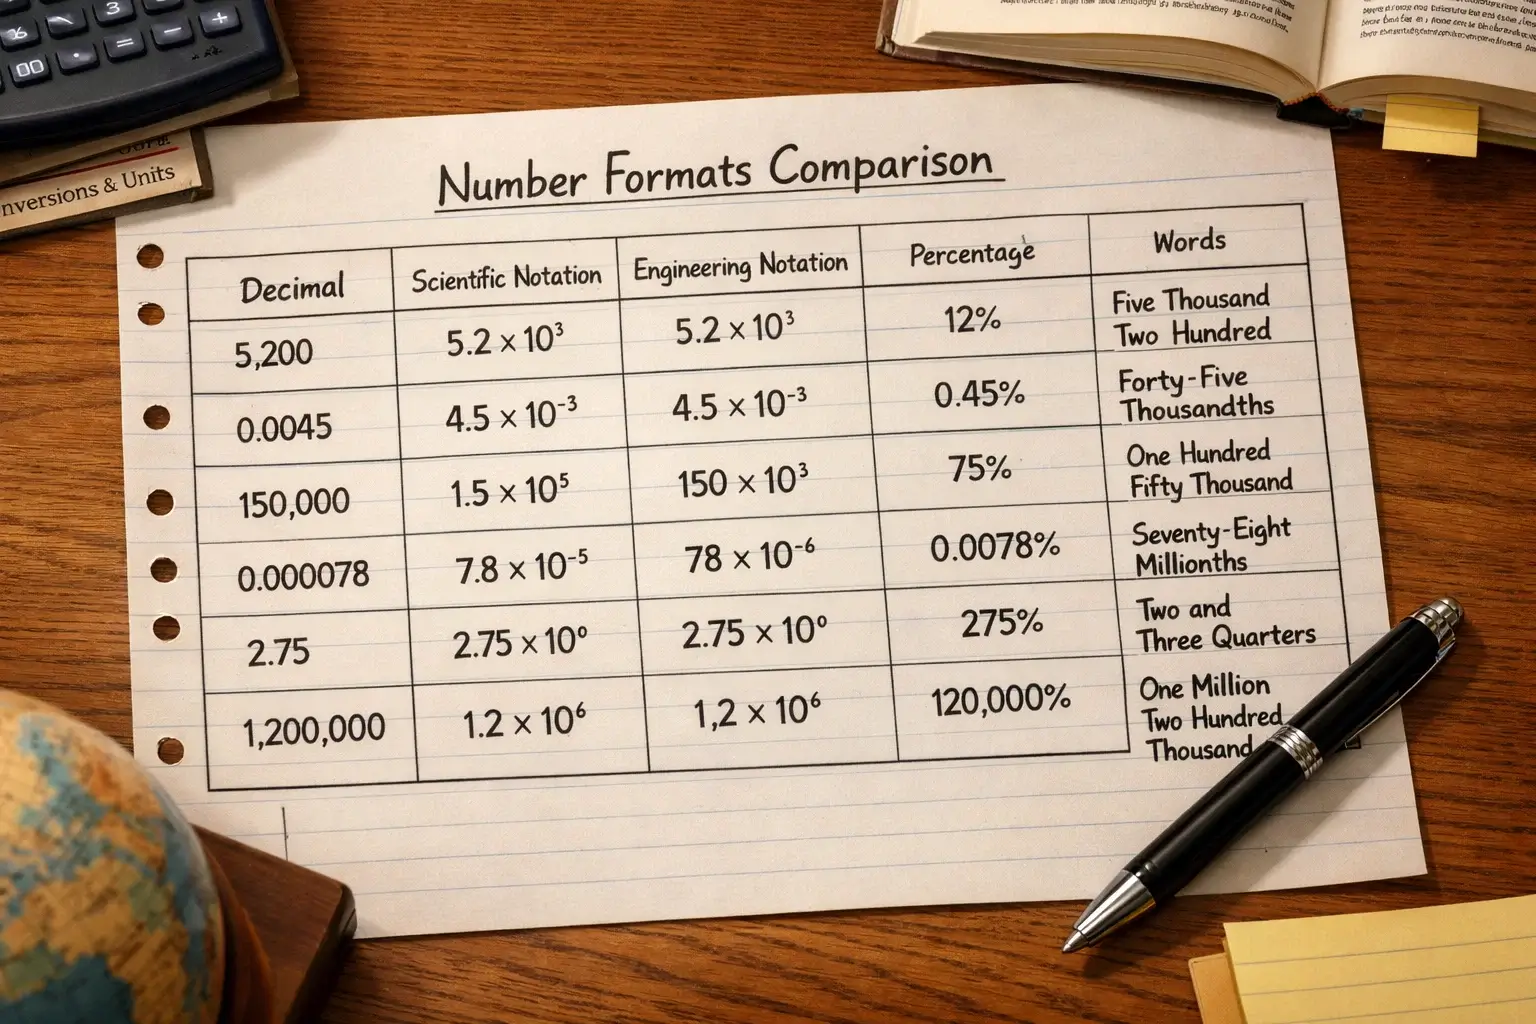 % √ 3 +
= − ÷
00 · =
nversions & Units
Number Formats Comparison
Decimal Scientific Notation Engineering Notation Percentage Words
5,200 5.2 × 10³ 5.2 × 10³ 12% Five Thousand
Two Hundred
0.0045 4.5 × 10⁻³ 4.5 × 10⁻³ 0.45% Forty-Five
Thousandths
150,000 1.5 × 10⁵ 150 × 10³ 75% One Hundred
Fifty Thousand
0.000078 7.8 × 10⁻⁵ 78 × 10⁻⁶ 0.0078% Seventy-Eight
Millionths
2.75 2.75 × 10⁰ 2.75 × 10⁰ 275% Two and
Three Quarters
1,200,000 1.2 × 10⁶ 1,2 × 10⁶ 120,000% One Million
Two Hundred
Thousand